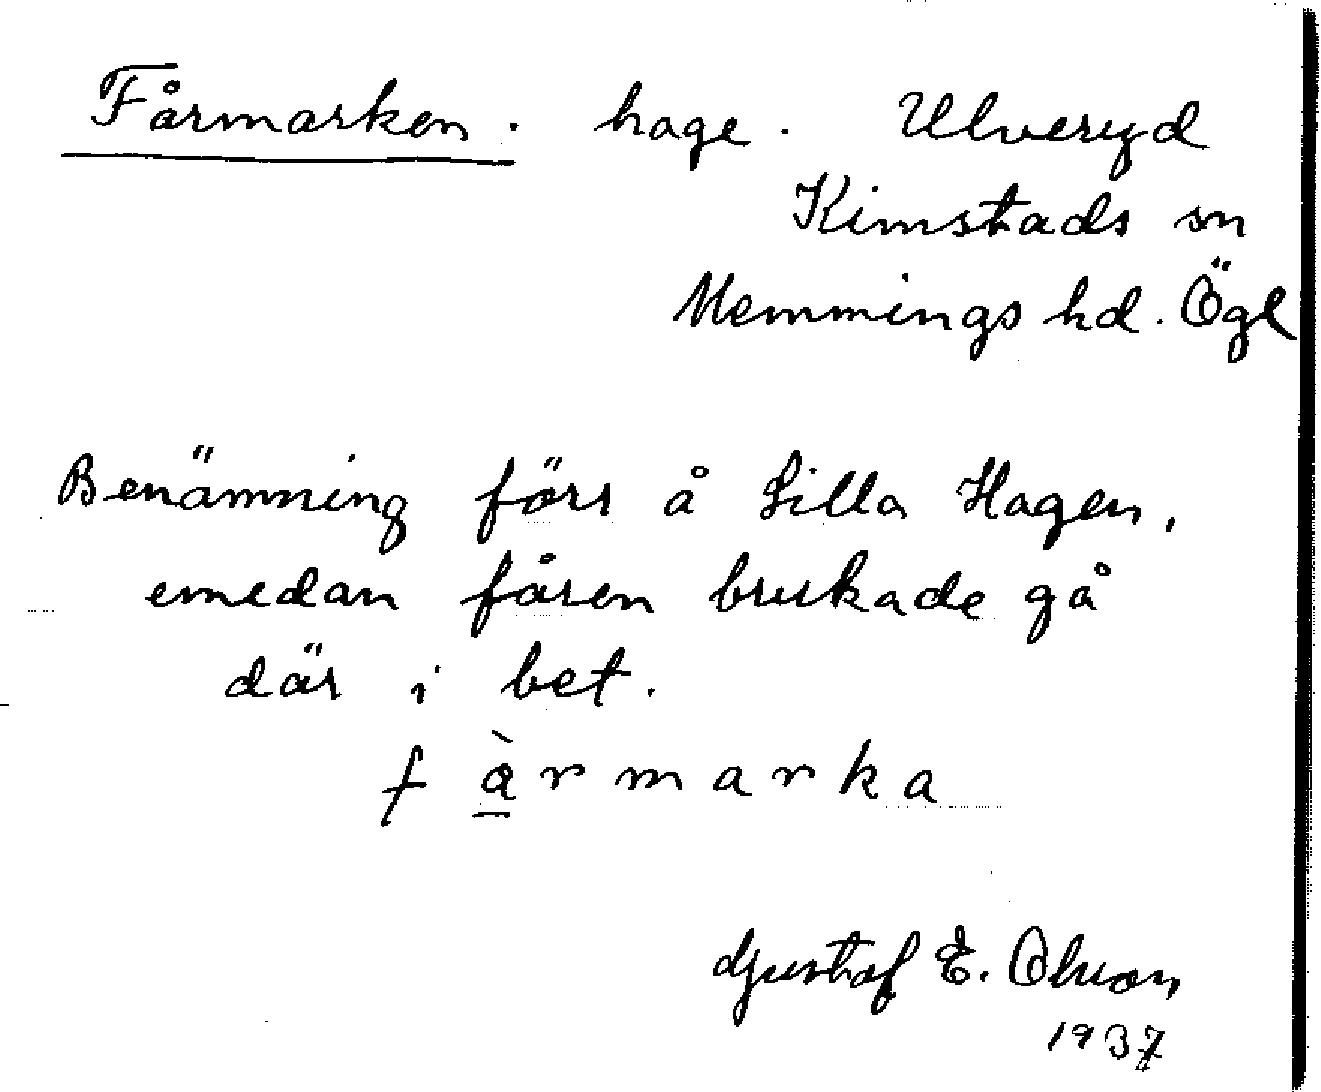 Fårmarken. hage. Ulveryd
Kimstads sn
Memmings hd. Ögl
Benämning förs å Lilla Hagen,
emedan fåren brukade gå
där i bet.
f à̱ r m a r k a
Gustaf E. Olson
1937